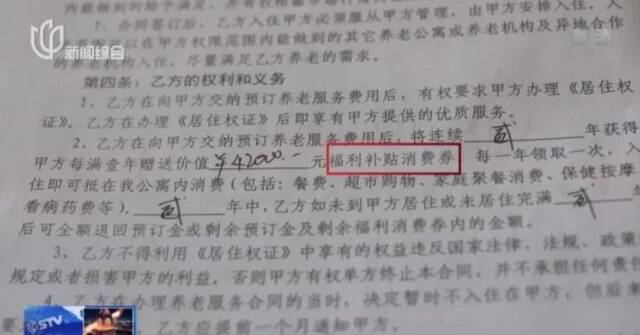 新闻综合
高清
能做到的给予满足，并有权根据
7、合同签订后，乙方入住甲方必须服从甲方管理，由甲方安排入住。
可以在甲方权限范围内能做到的其它养老公寓或养老机构及异地合作
的养老机构入住。尽量满足乙方养老的需求。
第四条：乙方的权利和义务
1、乙方在向甲方交纳预订养老服务费用后，有权要求甲方办理《居住权
证》。乙方在办理《居住权证》后即享有甲方提供的优质服务。
2、乙方在向甲方交纳预订养老服务费用后，将连续 贰 年获得
甲方每满壹年赠送价值 ¥42000.- 元福利补贴消费券，每一年领取一次，入
住即可抵在我公寓内消费（包括：餐费、超市购物、家庭聚餐消费、保健按摩
看病药费等）。 贰 年中，乙方如未到甲方居住或未居住完满 贰
后可全额退回预订金或剩余预订金及剩余福利消费券内的金额。
3、乙方不得利用《居住权证》中享有的权益违反国家法律、法规、政策
规定或者损害甲方的利益。否则甲方有权单方终止本合同，并不承担任何责任
4、乙方在办理养老服务合同的当时，决定暂时不入住在甲方，但后来
乙方应提前一个月通知甲方。
STV